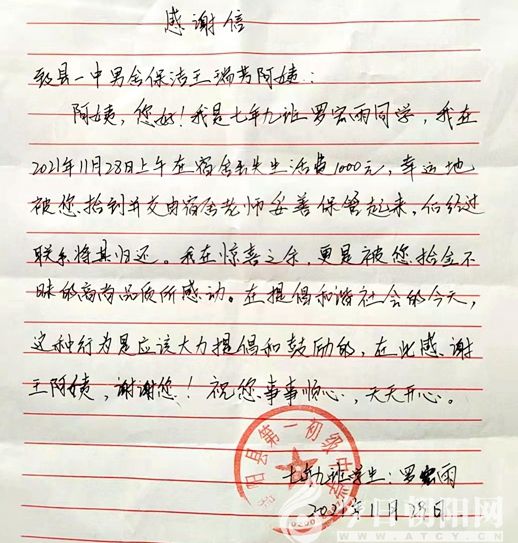 感谢信
致县一中男舍保洁王瑞芳阿姨：
阿姨，您好！我是七年九班罗宏雨同学，我在
2021年11月28日上午在宿舍丢失生活费1000元，幸运地
被您拾到并交由宿舍老师妥善保管起来，后经过
联系将其归还。我在惊喜之余，更是被您拾金不
昧的高尚品质所感动。在提倡和谐社会的今天，
这种行为是应该大力提倡和鼓励的，在此感谢
王阿姨，谢谢您！祝您事事顺心，天天开心。
阳县第一初级中学
七九班学生：罗宏雨
2021年11月28日
今日朝阳网
WWW.ATCY.CN